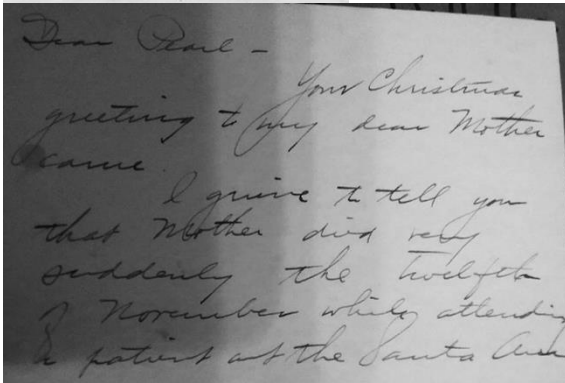 Dear Pearl -
Your Christmas
greeting to my dear Mother
came.
I grieve to tell you
that Mother died very
suddenly the twelfth
of November while attending
a patient at the Santa Ana